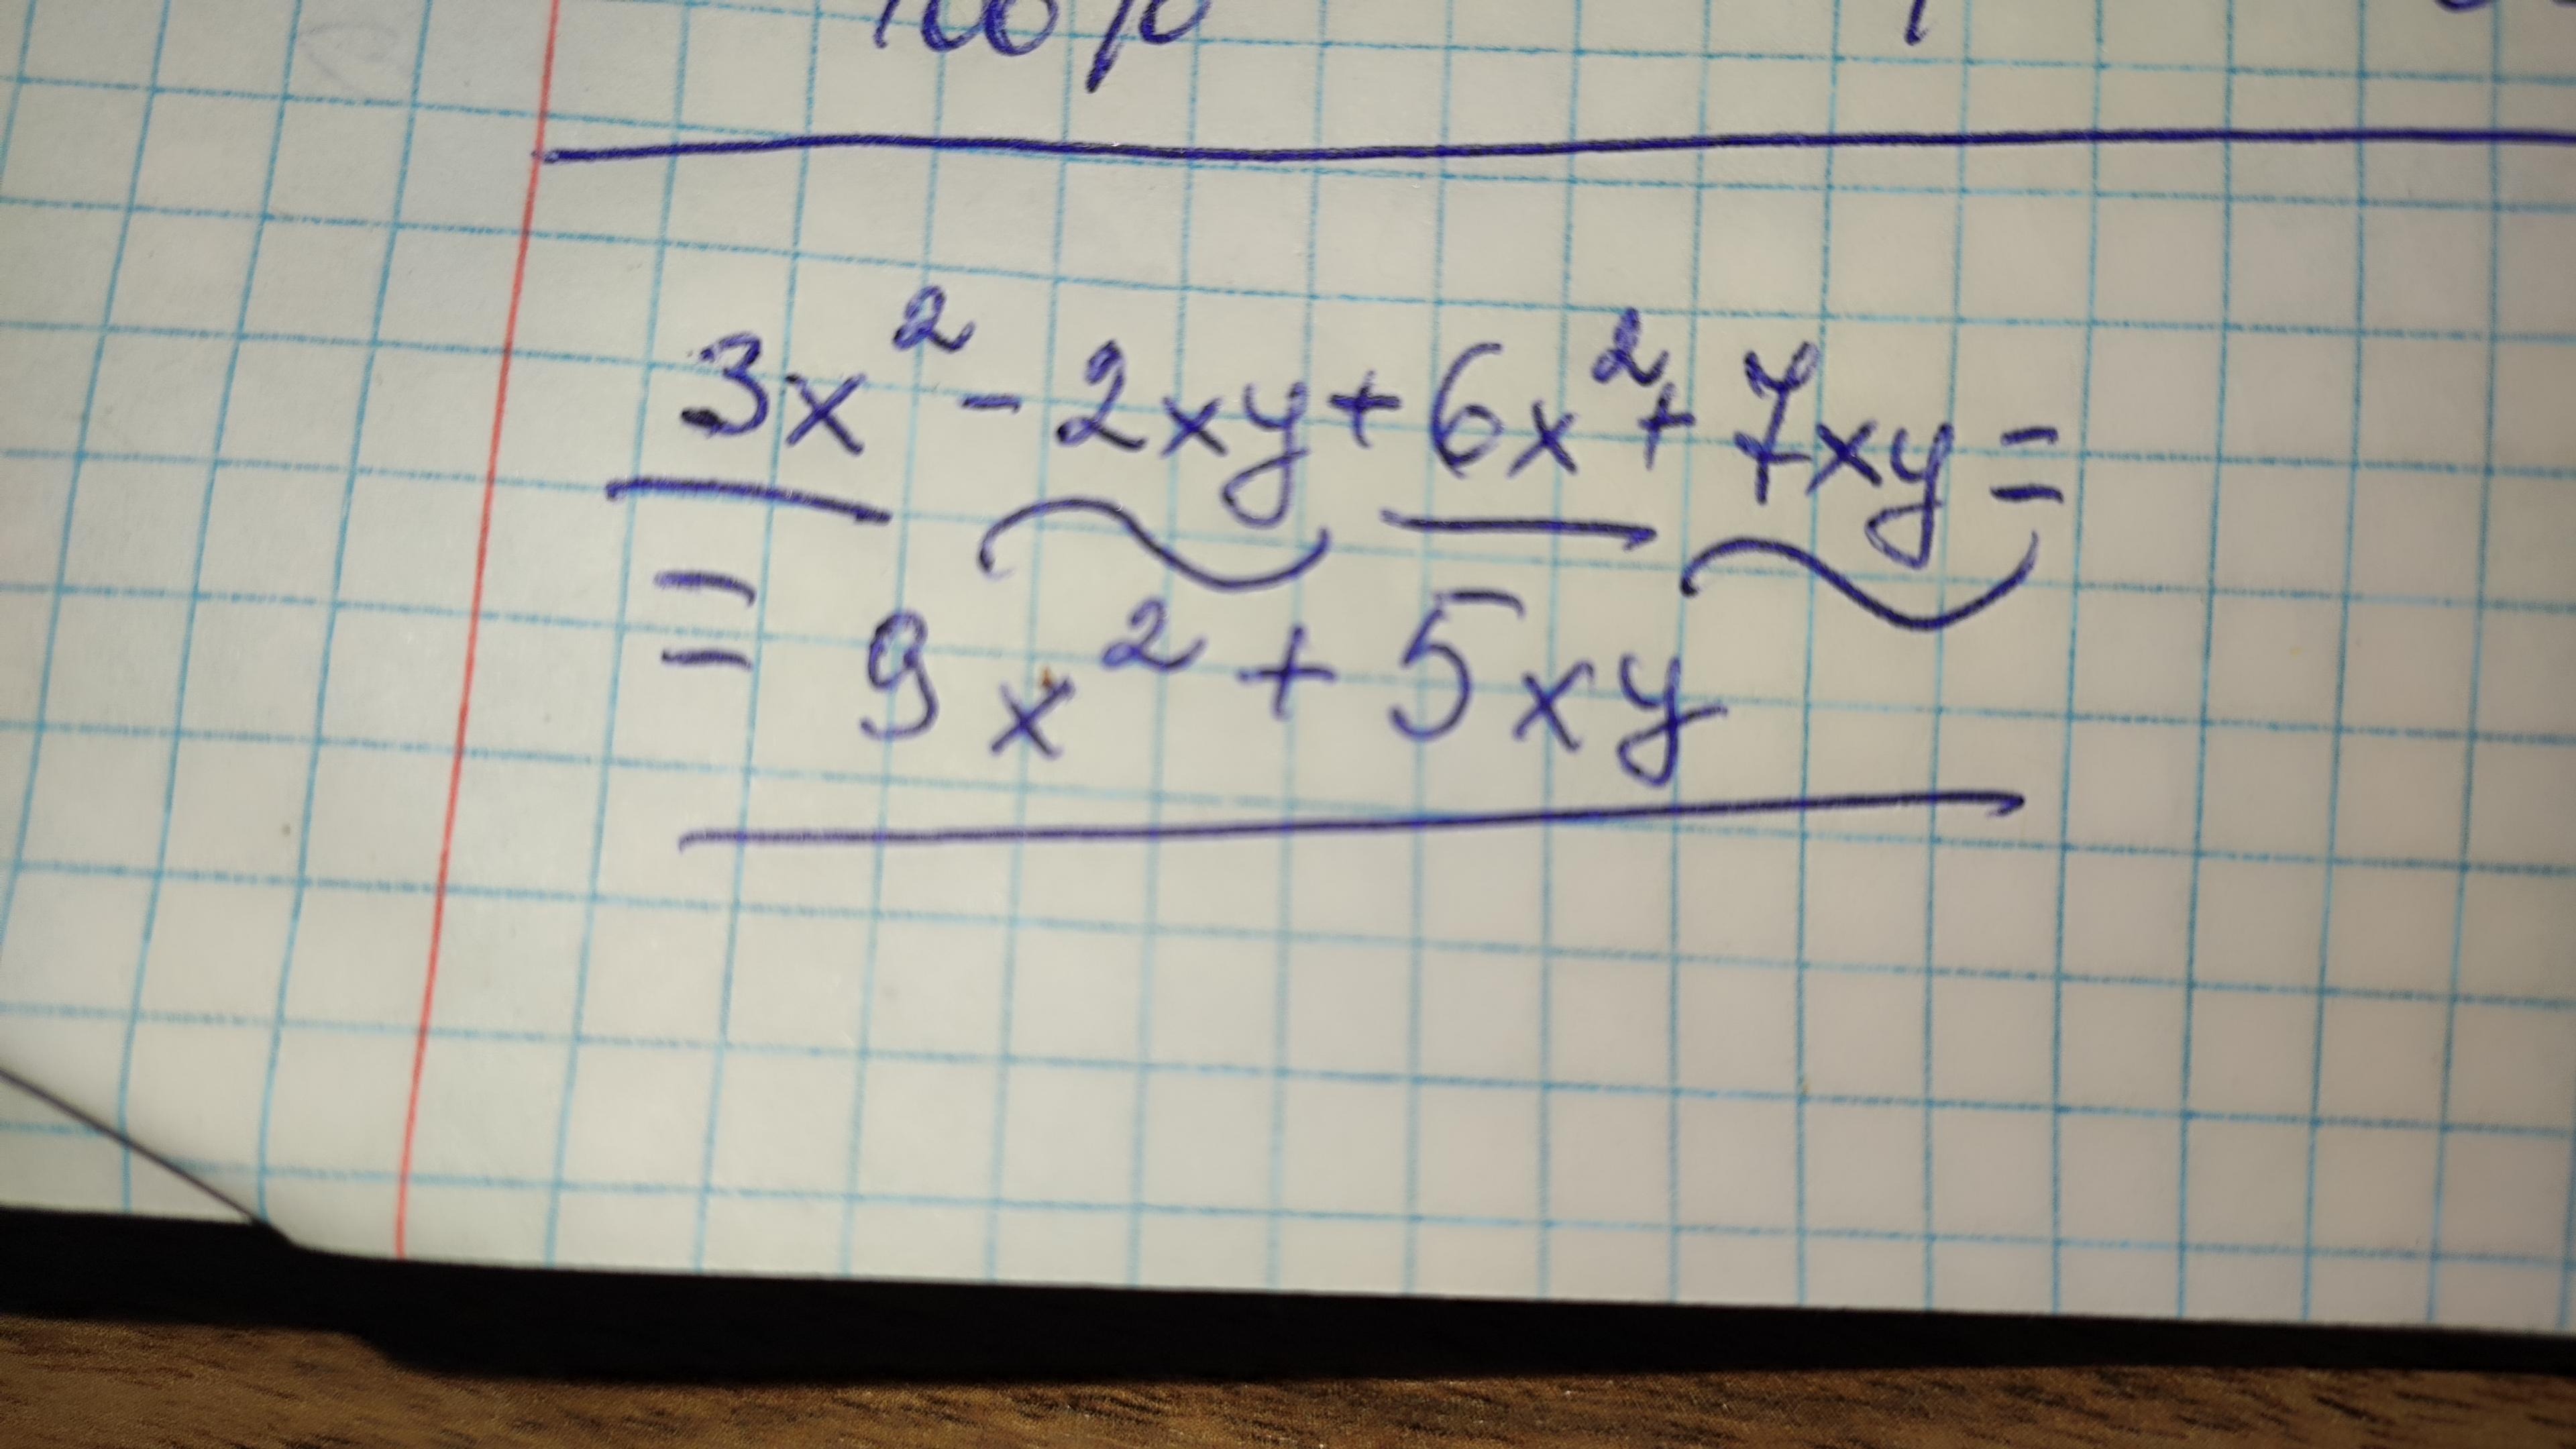 100%
3x² - 2xy + 6x² + 7xy =
= 9x² + 5xy